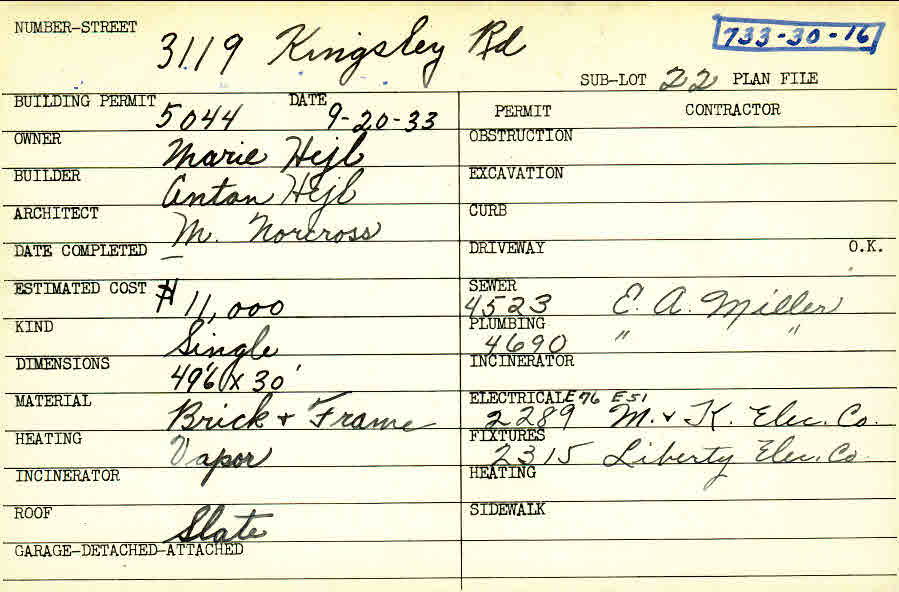 NUMBER-STREET 3119 Kingsley Rd 733-30-16
SUB-LOT 22 PLAN FILE
BUILDING PERMIT 5044 DATE 9-20-33
OWNER Marie Hejl
BUILDER Anton Hejl
ARCHITECT M. Norcross
DATE COMPLETED —
ESTIMATED COST $11,000
KIND Single
DIMENSIONS 49'6 x 30'
MATERIAL Brick + Frame
HEATING Vapor
INCINERATOR
ROOF Slate
GARAGE-DETACHED-ATTACHED
PERMIT CONTRACTOR
OBSTRUCTION
EXCAVATION
CURB
DRIVEWAY O.K.
SEWER 4523 E. A. Miller
PLUMBING 4690 " "
INCINERATOR
ELECTRICAL E76 E51
2289 M. + K. Elec. Co.
FIXTURES 2315 Liberty Elec. Co.
HEATING
SIDEWALK